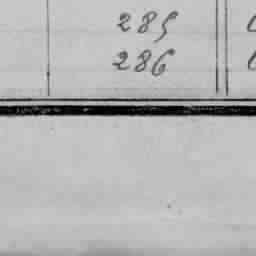 285
286